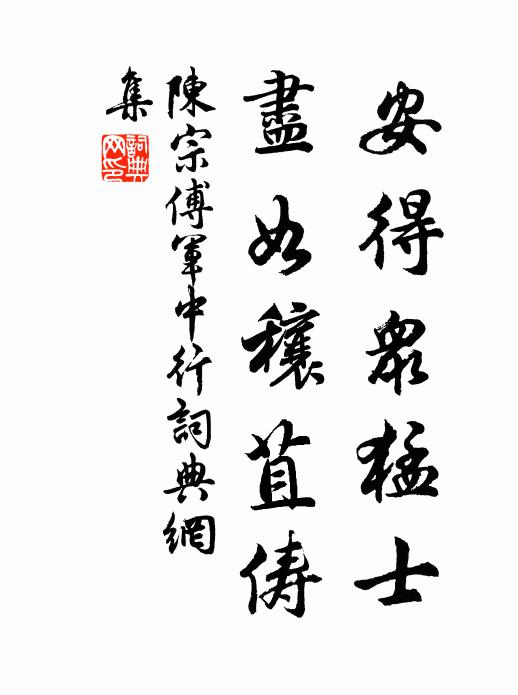 安得眾猛士
盡如穰苴儔
陳宗傅軍中行詞典網
集
詞典網印